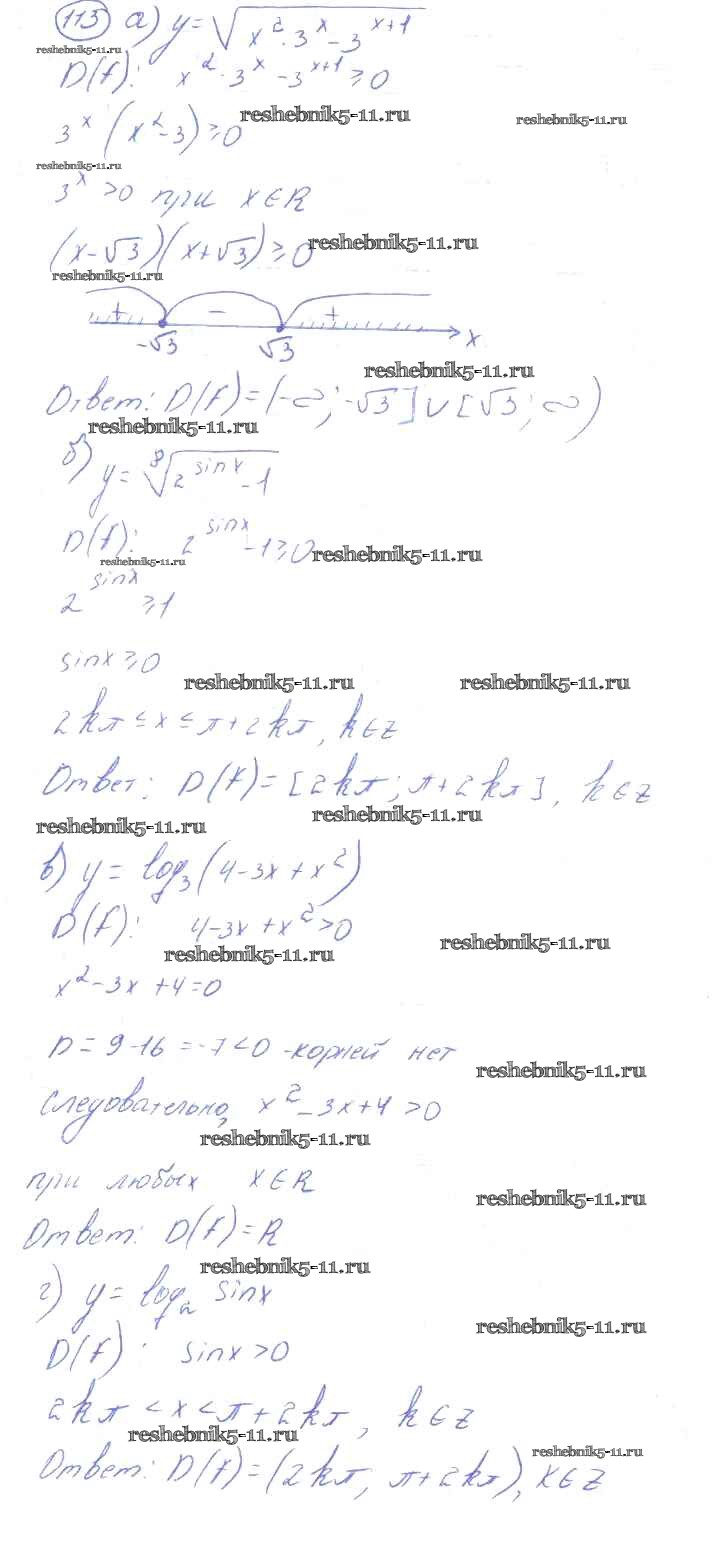 113 а) y = √(x²·3ˣ - 3ˣ⁺¹)
reshebnik5-11.ru
D(f): x²·3ˣ - 3ˣ⁺¹ ≥ 0
reshebnik5-11.ru reshebnik5-11.ru
3ˣ(x² - 3) ≥ 0
reshebnik5-11.ru
3ˣ > 0 при x ∈ R
(x - √3)(x + √3) ≥ 0 reshebnik5-11.ru
reshebnik5-11.ru
+ - +
-√3 √3 x
reshebnik5-11.ru
Ответ: D(f) = (-∞; -√3] ∪ [√3; ∞)
reshebnik5-11.ru
б) y = ⁸√(2^(sinx) - 1)
D(f): 2^(sinx) - 1 ≥ 0 reshebnik5-11.ru
reshebnik5-11.ru
2^(sinx) ≥ 1
sinx ≥ 0
reshebnik5-11.ru reshebnik5-11.ru
2kπ ≤ x ≤ π + 2kπ, k ∈ z
Ответ: D(f) = [2kπ; π + 2kπ], k ∈ z
reshebnik5-11.ru reshebnik5-11.ru
в) y = log₃(4 - 3x + x²)
D(f): 4 - 3x + x² > 0
reshebnik5-11.ru reshebnik5-11.ru
x² - 3x + 4 = 0
D = 9 - 16 = -7 < 0 - корней нет
reshebnik5-11.ru
Следовательно, x² - 3x + 4 > 0
reshebnik5-11.ru
при любых x ∈ R
reshebnik5-11.ru
Ответ: D(f) = R
reshebnik5-11.ru
г) y = log₂ sinx
reshebnik5-11.ru
D(f): sinx > 0
2kπ < x < π + 2kπ, k ∈ z
reshebnik5-11.ru reshebnik5-11.ru
Ответ: D(f) = (2kπ, π + 2kπ), k ∈ z